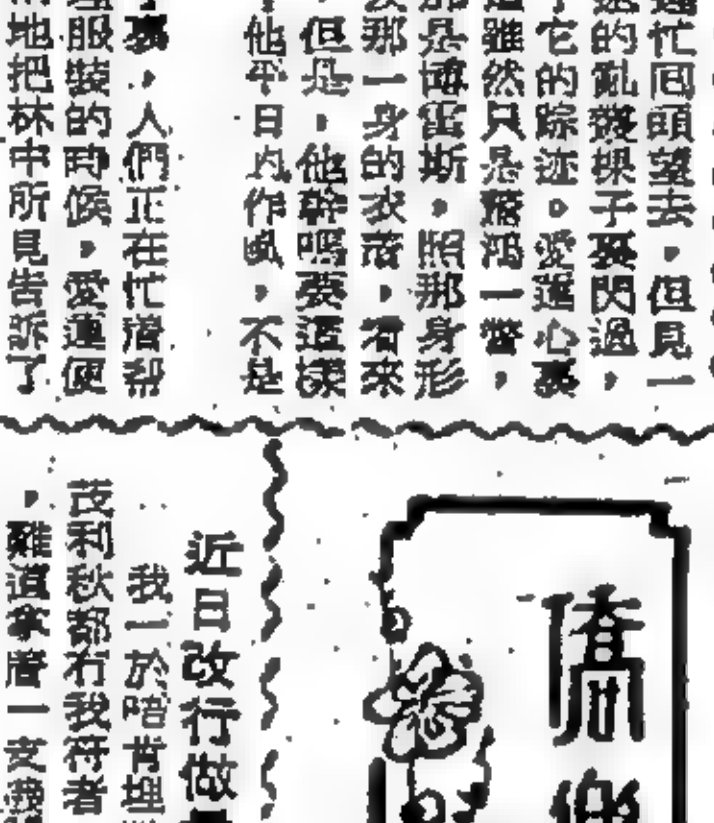 忙回頭望去，但見一
的亂髮樑子裏閃過，
它的踪迹。愛蓮心裏
雖然只是驚鴻一瞥，
是博雷斯。照那身形
那一身的衣着，看來
但是，他幹嗎要這樣
他平日內作風，不是
裏，人們正在忙着帮
服裝的時候，愛蓮便
地把林中所見告訴了
僑樂
近日改行做
我一於唔肯埋
茂利秋都冇我符者
，難道拿着一支